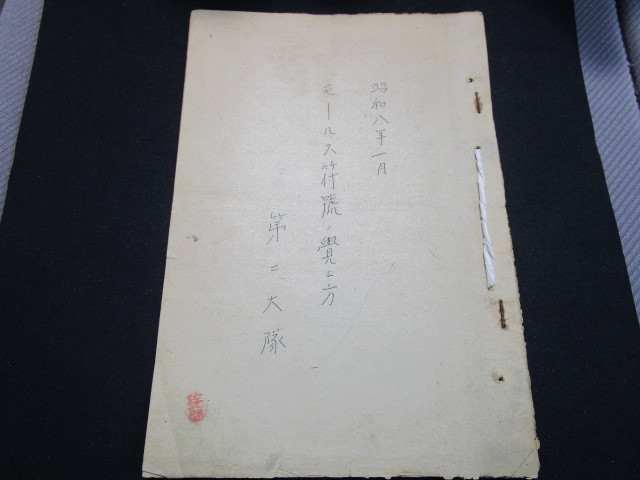 昭和八年一月
モールス符號ノ覺エ方
第二大隊